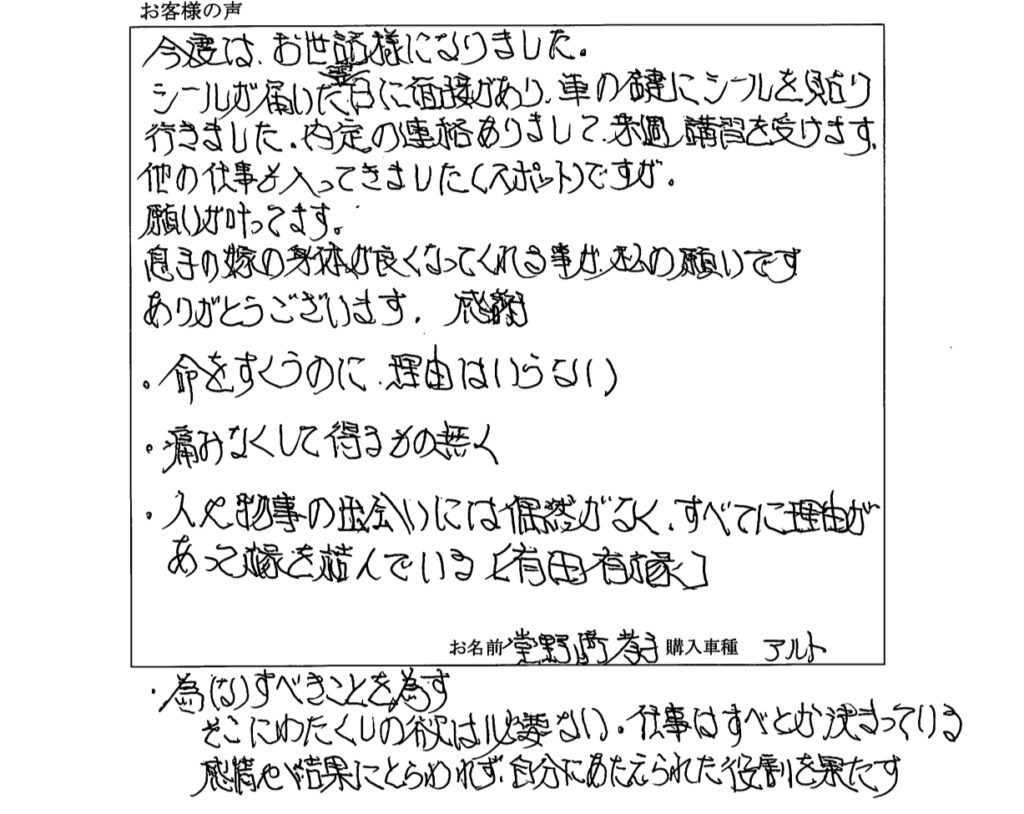 お客様の声
今度は、お世話様になりました。
シールが届いた翌日に面接があり、車の鍵にシールを貼り
行きました。内定の連絡ありまして、来週、講習を受けます。
他の仕事も入ってきました(スポット)ですが。
願いが叶ってます。
息子の嫁の身体が良くなってくれる事が、私の願いです
ありがとうございます。 感謝
。命をすくうのに、理由はいらない
・痛みなくして得るもの無く
・人や物事の出会いには偶然がなく、すべてに理由が
あって縁を結んでいる[有因有縁]
お名前 孝子 購入車種 アルト
・為(な)すべきことを為す
そこにわたくしの欲は必要ない。仕事はすべとが決まっている
感情や結果にとらわれず、自分にあたえられた役割を果たす